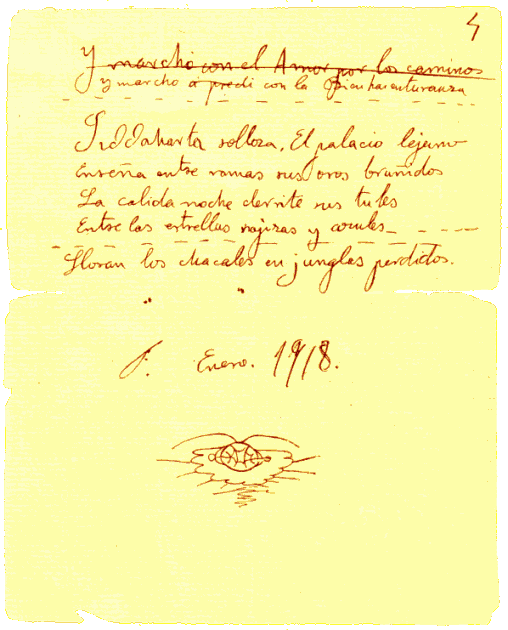 4
Y marchó con el Amor por los caminos
y marcho a predi con la Bienhaventuranza
Siddaharta solloza. El palacio lejano
Enseña entre ramas sus oros bruñidos
La calida noche derrite sus tules
Entre las estrellas rojizas y azules
Lloran los chacales en junglas perdidos.
F. Enero. 1918.